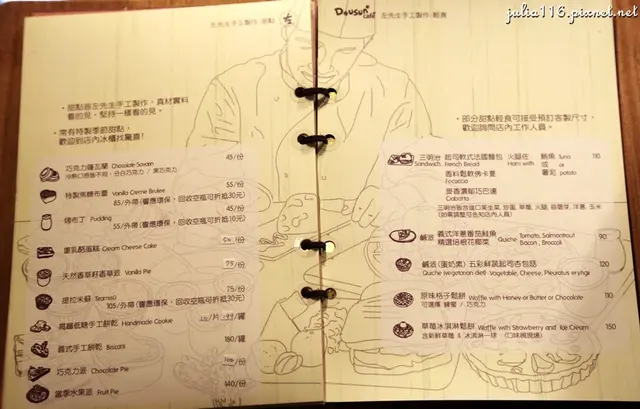 julia116.pixnet.net
左先生手工製作.甜點 左
• 甜點皆左先生手工製作，真材實料
看的見。堅持一樣看的見。
• 常有特製季節甜點，
歡迎到店內冰櫃找驚喜!
巧克力薩瓦蘭 Chocolate Savarin 45/份
特製焦糖布蕾 Vanilla Creme Brulee 55/份
85/外帶(響應環保，回收空瓶可折抵30元)
燒布丁 Pudding 45/份
55/外帶(響應環保，回收空瓶可折抵10元)
重乳酪蛋糕 Cream Cheese Cake
天然香草籽香草派 Vanilla Pie 75/份
提拉米蘇 Teamisu 75/份
105/外帶(響應環保，回收空瓶可折抵30元)
高纖低糖手工餅乾 Handmade Cookie
義式手工餅乾 Biscotti 180/罐
巧克力派 Chocolate Pie
當季水果派 Fruit Pie 140/份
Dousuri café 左先生手工製作.輕食
• 部分甜點輕食可接受預訂客製尺寸，
歡迎詢問店內工作人員。
三明治 起司軟式法國麵包 火腿佐 鮪魚 tuna 110
Sandwich French Bread Ham with 或 or
香料鬆軟佛卡夏 薯泥 potato
Focaccia
炭香濃郁巧巴達
Ciabatta
鹹派 義式洋蔥番茄鮭魚 Quiche Tomato, Salmontrout 90
精選培根花椰菜 Bacon, Broccoli
鹹派(蛋奶素) 五彩鮮蔬起司杏包菇 120
Quiche (vegetarian diet) Vegetable, Cheese, Pleurotus eryngii
原味格子鬆餅 Waffle with Honey or Butter or Chocolate 110
可選擇 蜂蜜 / 巧克力
草莓冰淇淋鬆餅 Waffle with Strawberry and Ice Cream 150